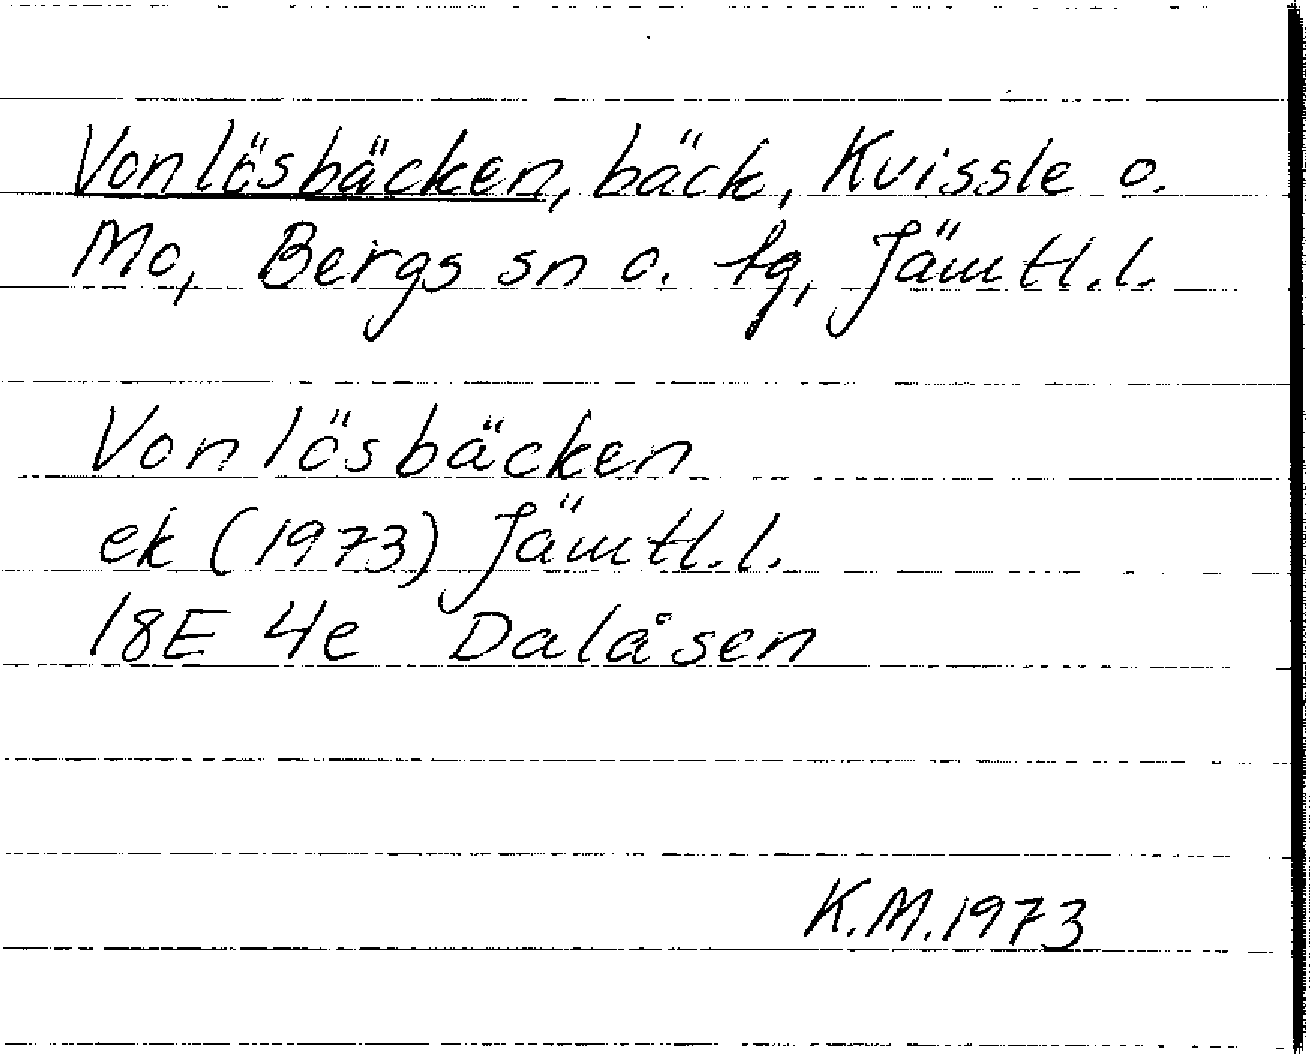 Vonlösbäcken, bäck, Kvissle o.
Mo, Bergs sn o. tg, Jämtl.l.
Vonlösbäcken
ek (1973) Jämtl.l.
18E 4e Dalåsen
K.M.1973